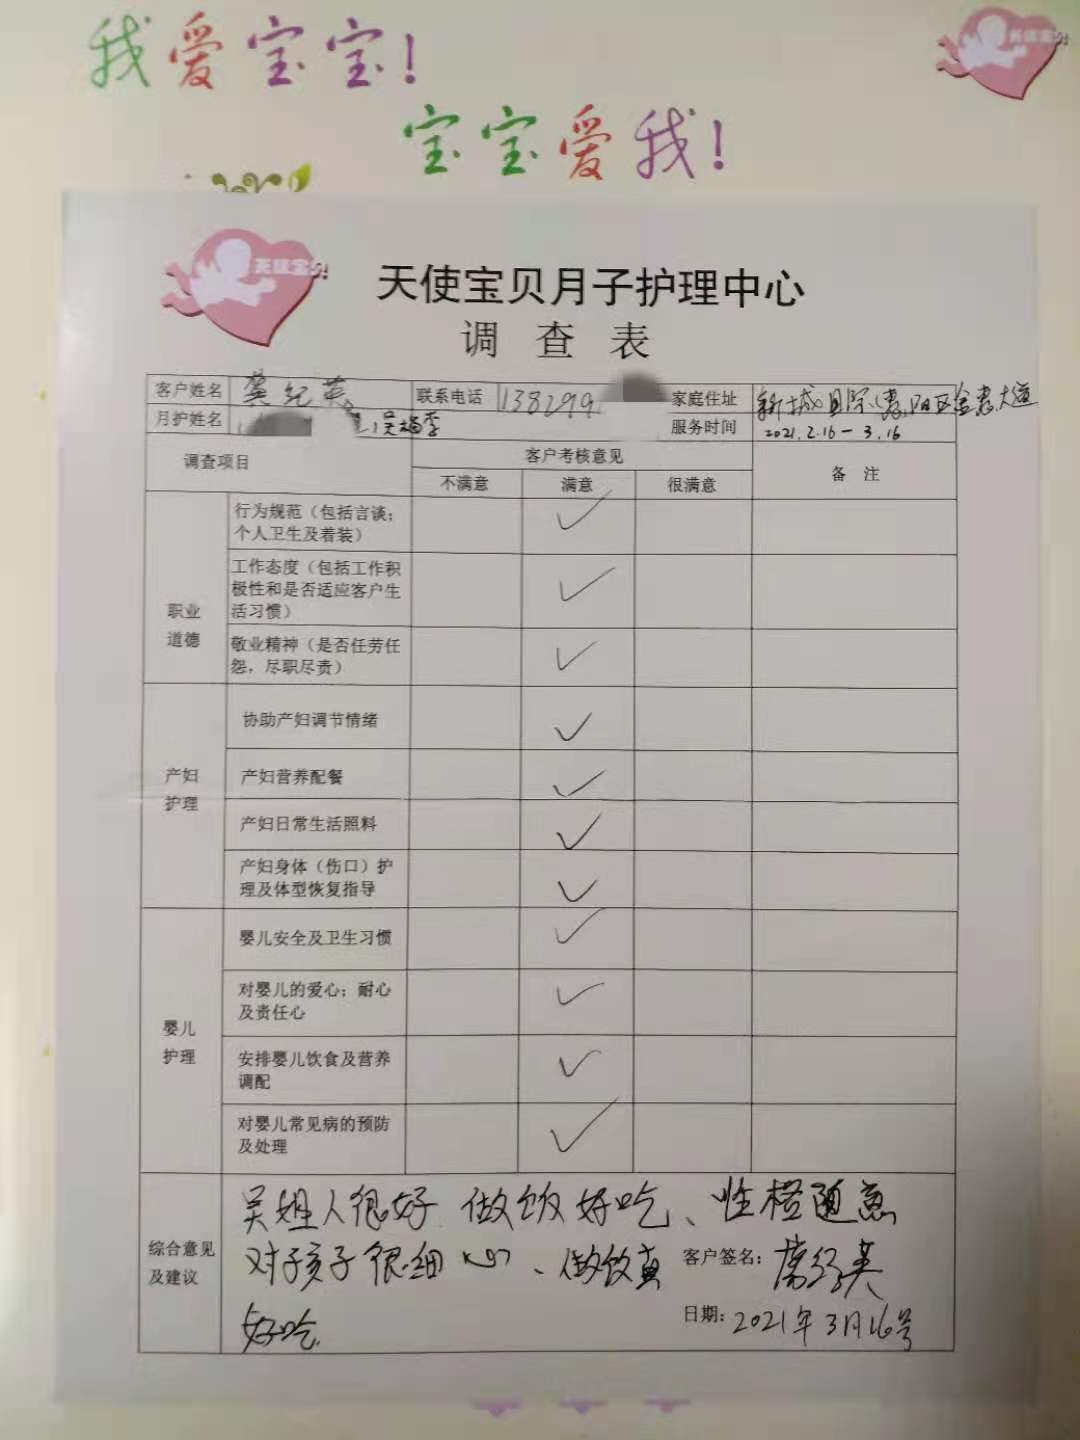 我爱宝宝!
宝宝爱我!
天使宝贝月子护理中心
调 查 表
客户姓名 纪英 联系电话 1382991 家庭住址 新城
月护姓名 吴福李 服务时间 2021.2.16-3.16
调查项目 客户考核意见 备 注
不满意 满意 很满意
职业
道德
行为规范（包括言谈；
个人卫生及着装）
工作态度（包括工作积
极性和是否适应客户生
活习惯）
敬业精神（是否任劳任
怨，尽职尽责）
产妇
护理
协助产妇调节情绪
产妇营养配餐
产妇日常生活照料
产妇身体（伤口）护
理及体型恢复指导
婴儿
护理
婴儿安全及卫生习惯
对婴儿的爱心；耐心
及责任心
安排婴儿饮食及营养
调配
对婴儿常见病的预防
及处理
综合意见
及建议
吴姐人很好 做饭好吃、性格随意
对孩子很细心、做饭真
好吃.
客户签名:
日期: 2021年3月16号